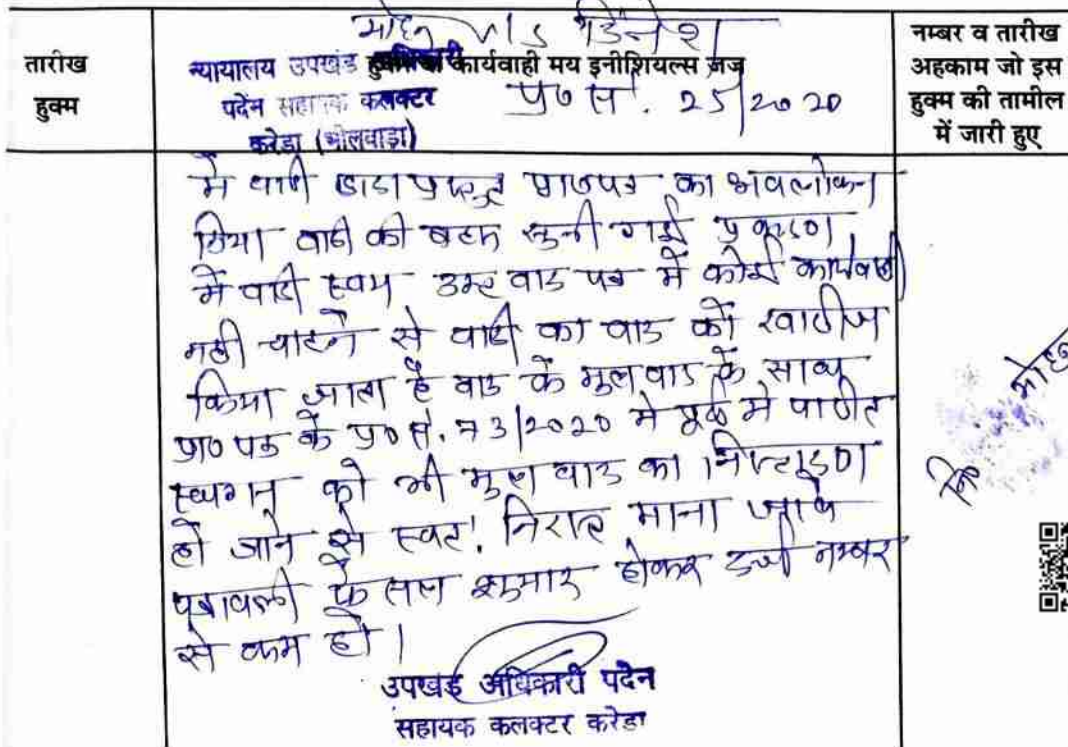 तारीख
हुक्म
मोहन V/S दिनेश
न्यायालय उपखंड अधिकारी कार्यवाही मय इनीशियल्स जज
पदेन सहायक कलक्टर प्र० सं. 25/2020
करेडा (भीलवाड़ा)
नम्बर व तारीख
अहकाम जो इस
हुक्म की तामील
में जारी हुए
में वादी द्वारा प्रस्तुत प्रा०पत्र का अवलोकन
किया वादी की बहस सुनी गई प्रकरण
में वादी स्वयं उक्त वाद पत्र में कोई कार्यवाही
नही चाहने से वादी का वाद को खारीज
किया जाता है वाद के मुलवाद के साथ
प्रा० पत्र के प्र० सं. 73/2020 मे पूर्व मे पारीत
स्थगन को भी मुल वाद का निस्तारण
हो जाने से स्वत: निरस्त माना जावे
पत्रावली फैसल शुमार होकर दर्ज नम्बर
से कम हो।
उपखंड अधिकारी पदेन
सहायक कलक्टर करेडा
मोहन